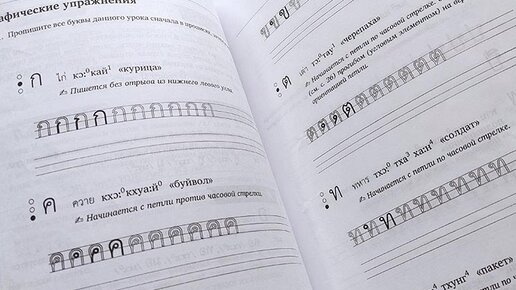 фические упражнения
Пропишите все буквы данного урока сначала в прописи,
ก ไก่ кɔ:⁰кай¹ «курица»
✍ Пишется без отрыва из нижнего левого угла.
ก ก ก ก ก ก ก ก ก
ค ควาย кхɔ:⁰кхуа:й⁰ «буйвол»
✍ Начинается с петли против часовой стрелки.
ค ค ค ค ค ค ค ค ค
ต เต่า тɔ:⁰тау¹ «черепаха»
✍ Начинается с петли по часовой стрелке.
(см. с. 26) прогибом (условным элементом) на верх
ориентацией петли.
ต ต ต ต ต ต ต ต ต
ท ทหาร тхɔ:⁰ тха³ ха:н⁴ «солдат»
✍ Начинается с петли по часовой стрелке.
ท ท ท ท ท ท ท ท ท
тхунг⁴ «пакет»